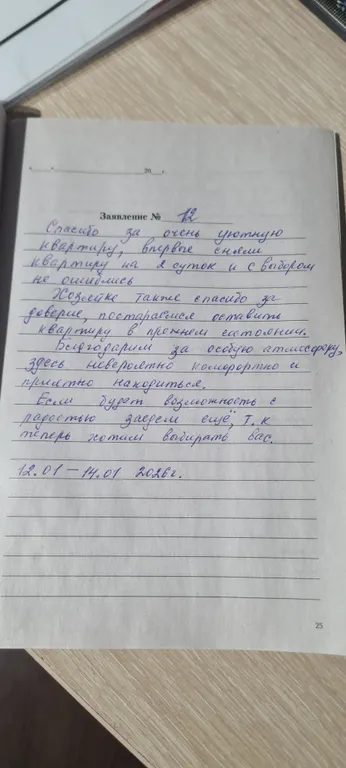 "___" ____________ 20__ г.
Заявление № 12
Спасибо за очень уютную
квартиру, впервые сняли
квартиру на я суток и с выбором
не ошиблись
Хозяйке также спасибо за
доверие, постараемся оставить
квартиру в прежнем состоянии.
Благодарим за особую атмосферу,
здесь невероятно комфортно и
приятно находиться.
Если будет возможность с
радостью заедем ещё, т.к
теперь хотим выбирать вас.
12.01 – 14.01 2026г.
25